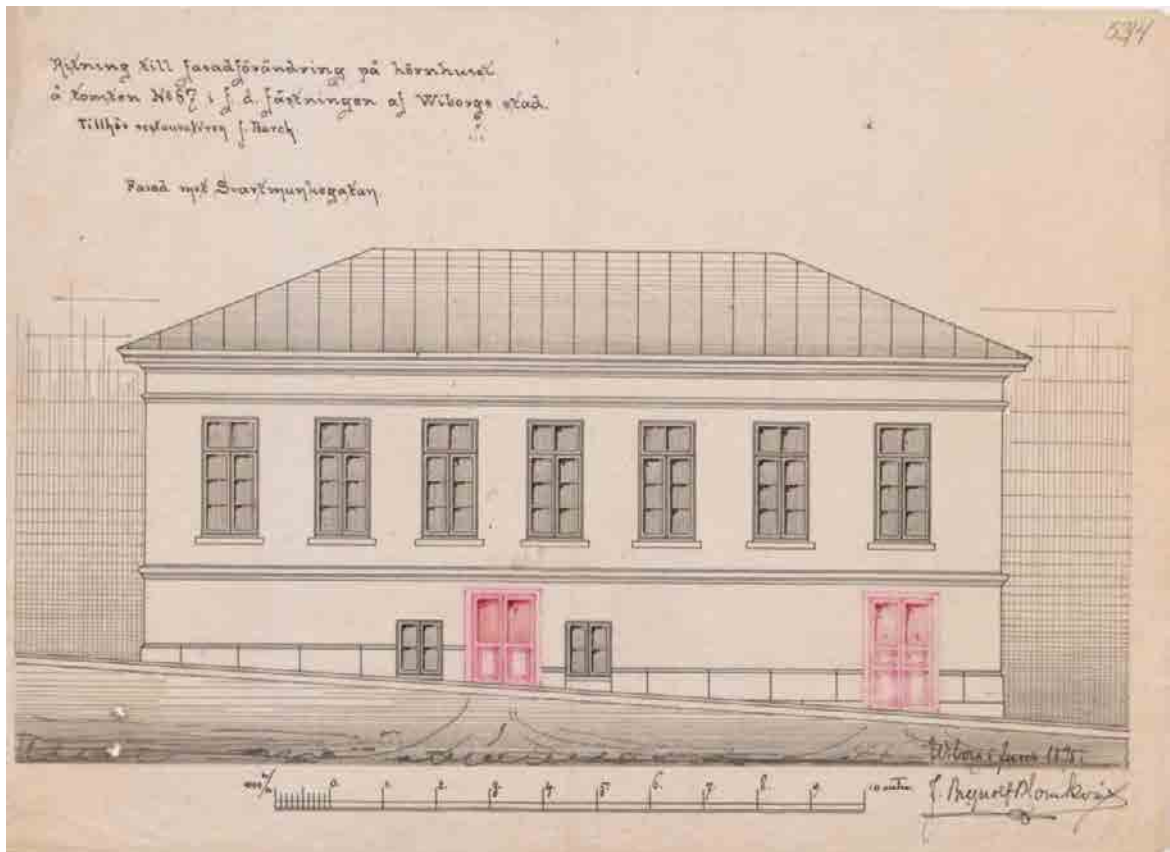 5344
Ritning till fasadförändring på hörnhuset
å tomten № 67 i f. d. fästningen af Wiborgs stad.
Tillhör restauratören J. Barck
Fasad mot Svartmunkegatan.
0. 1. 2. 3. 4. 5. 6. 7. 8. 9. 10 meter
Wiborg i juni
J. Brynolf Blomkvist